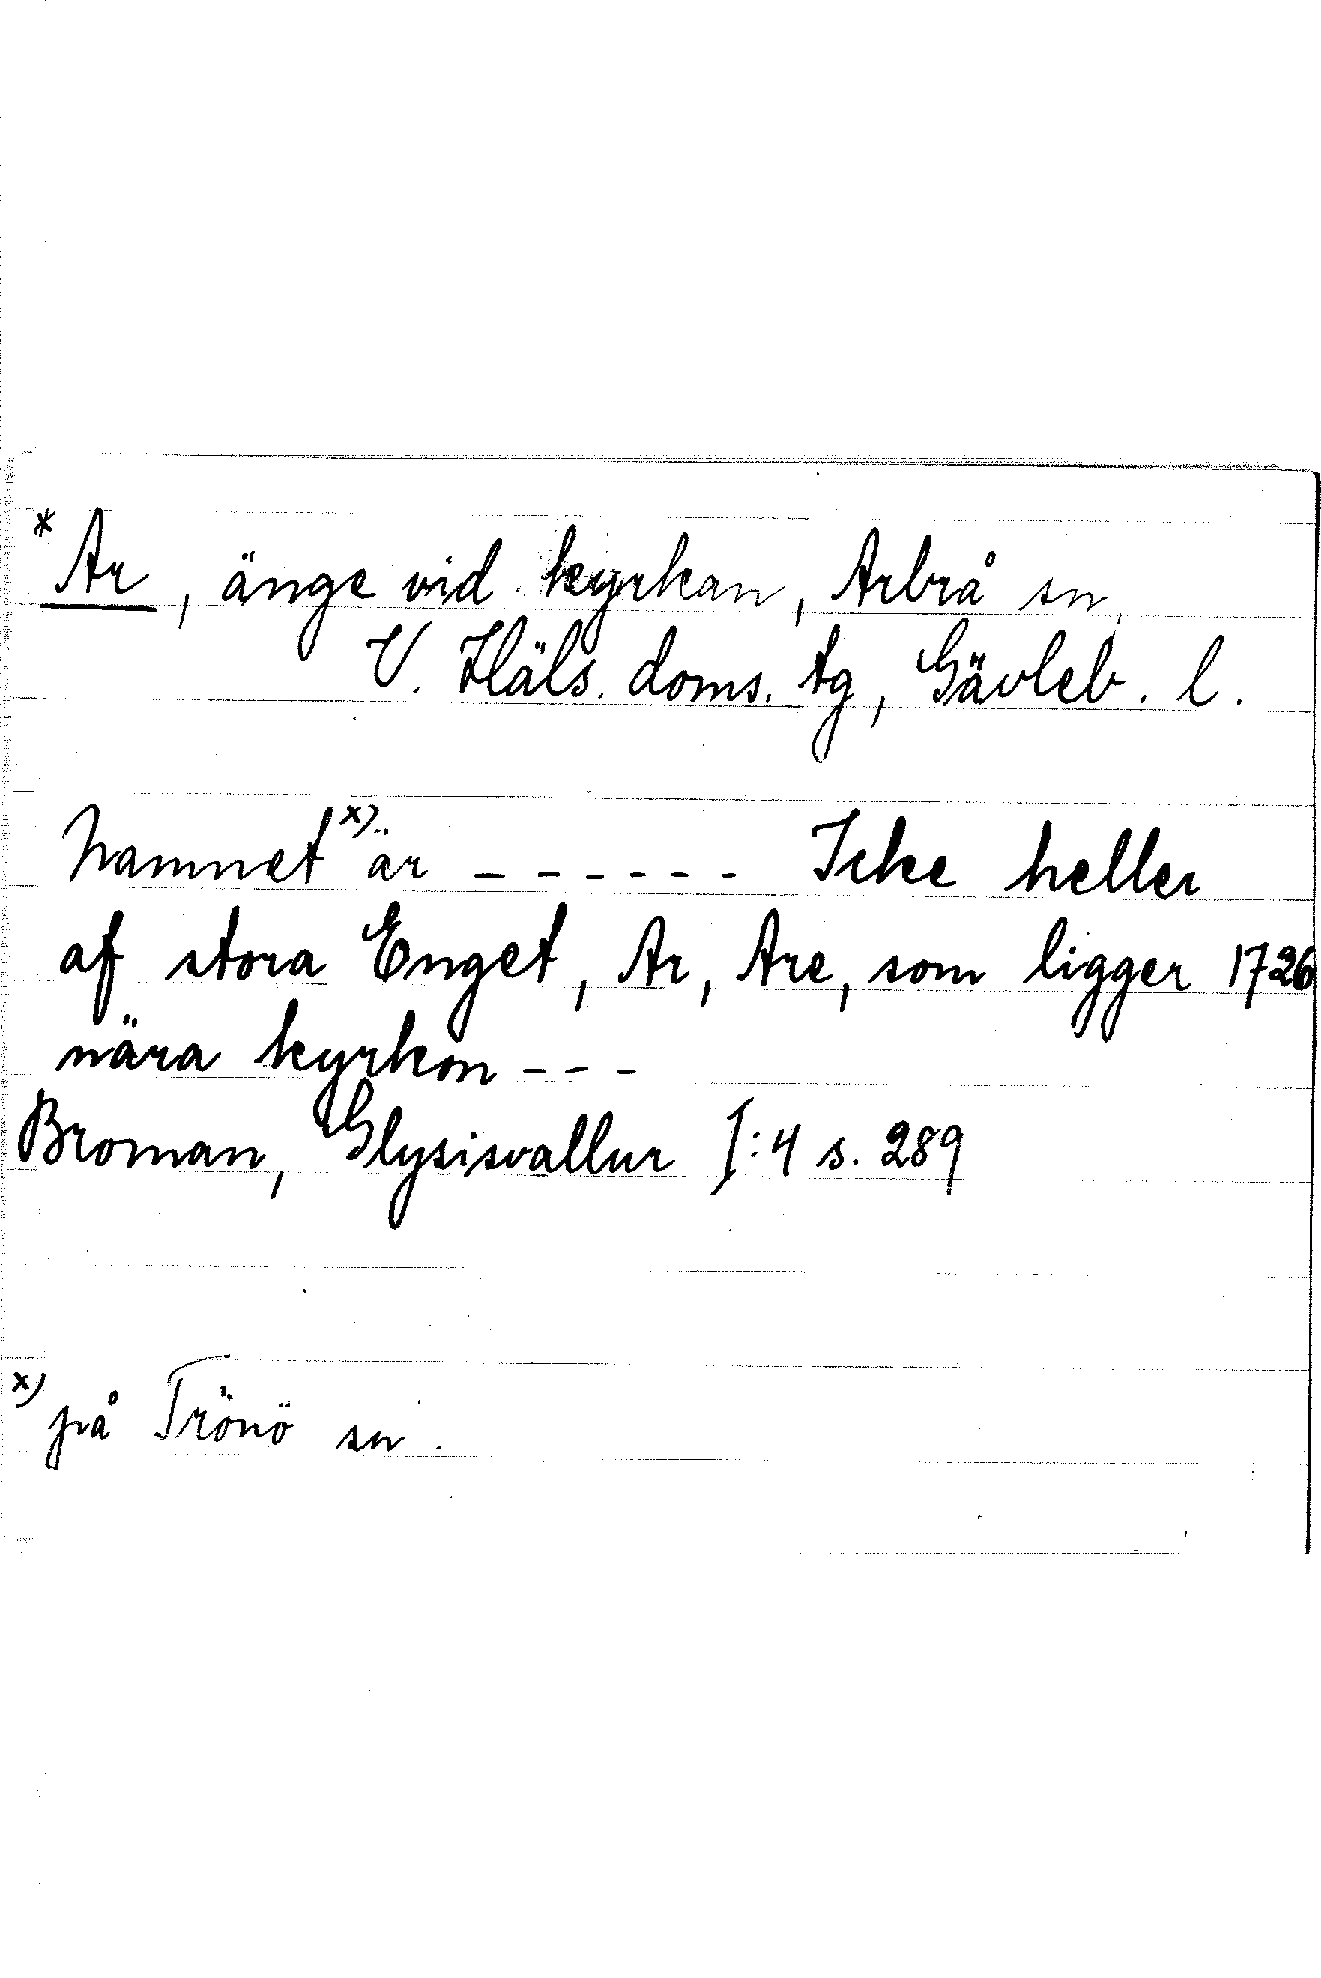 * Ar, änge vid kyrkan, Arbrå sn,
V. Häls. doms. tg, Gävleb. l.
Namnet x) är - - - - - - Icke heller
af stora Enget, Ar, Are, som ligger 1726
nära kyrkon - - -
Broman, Glysisvallur I:4 s. 289
x) på Trönö sn.